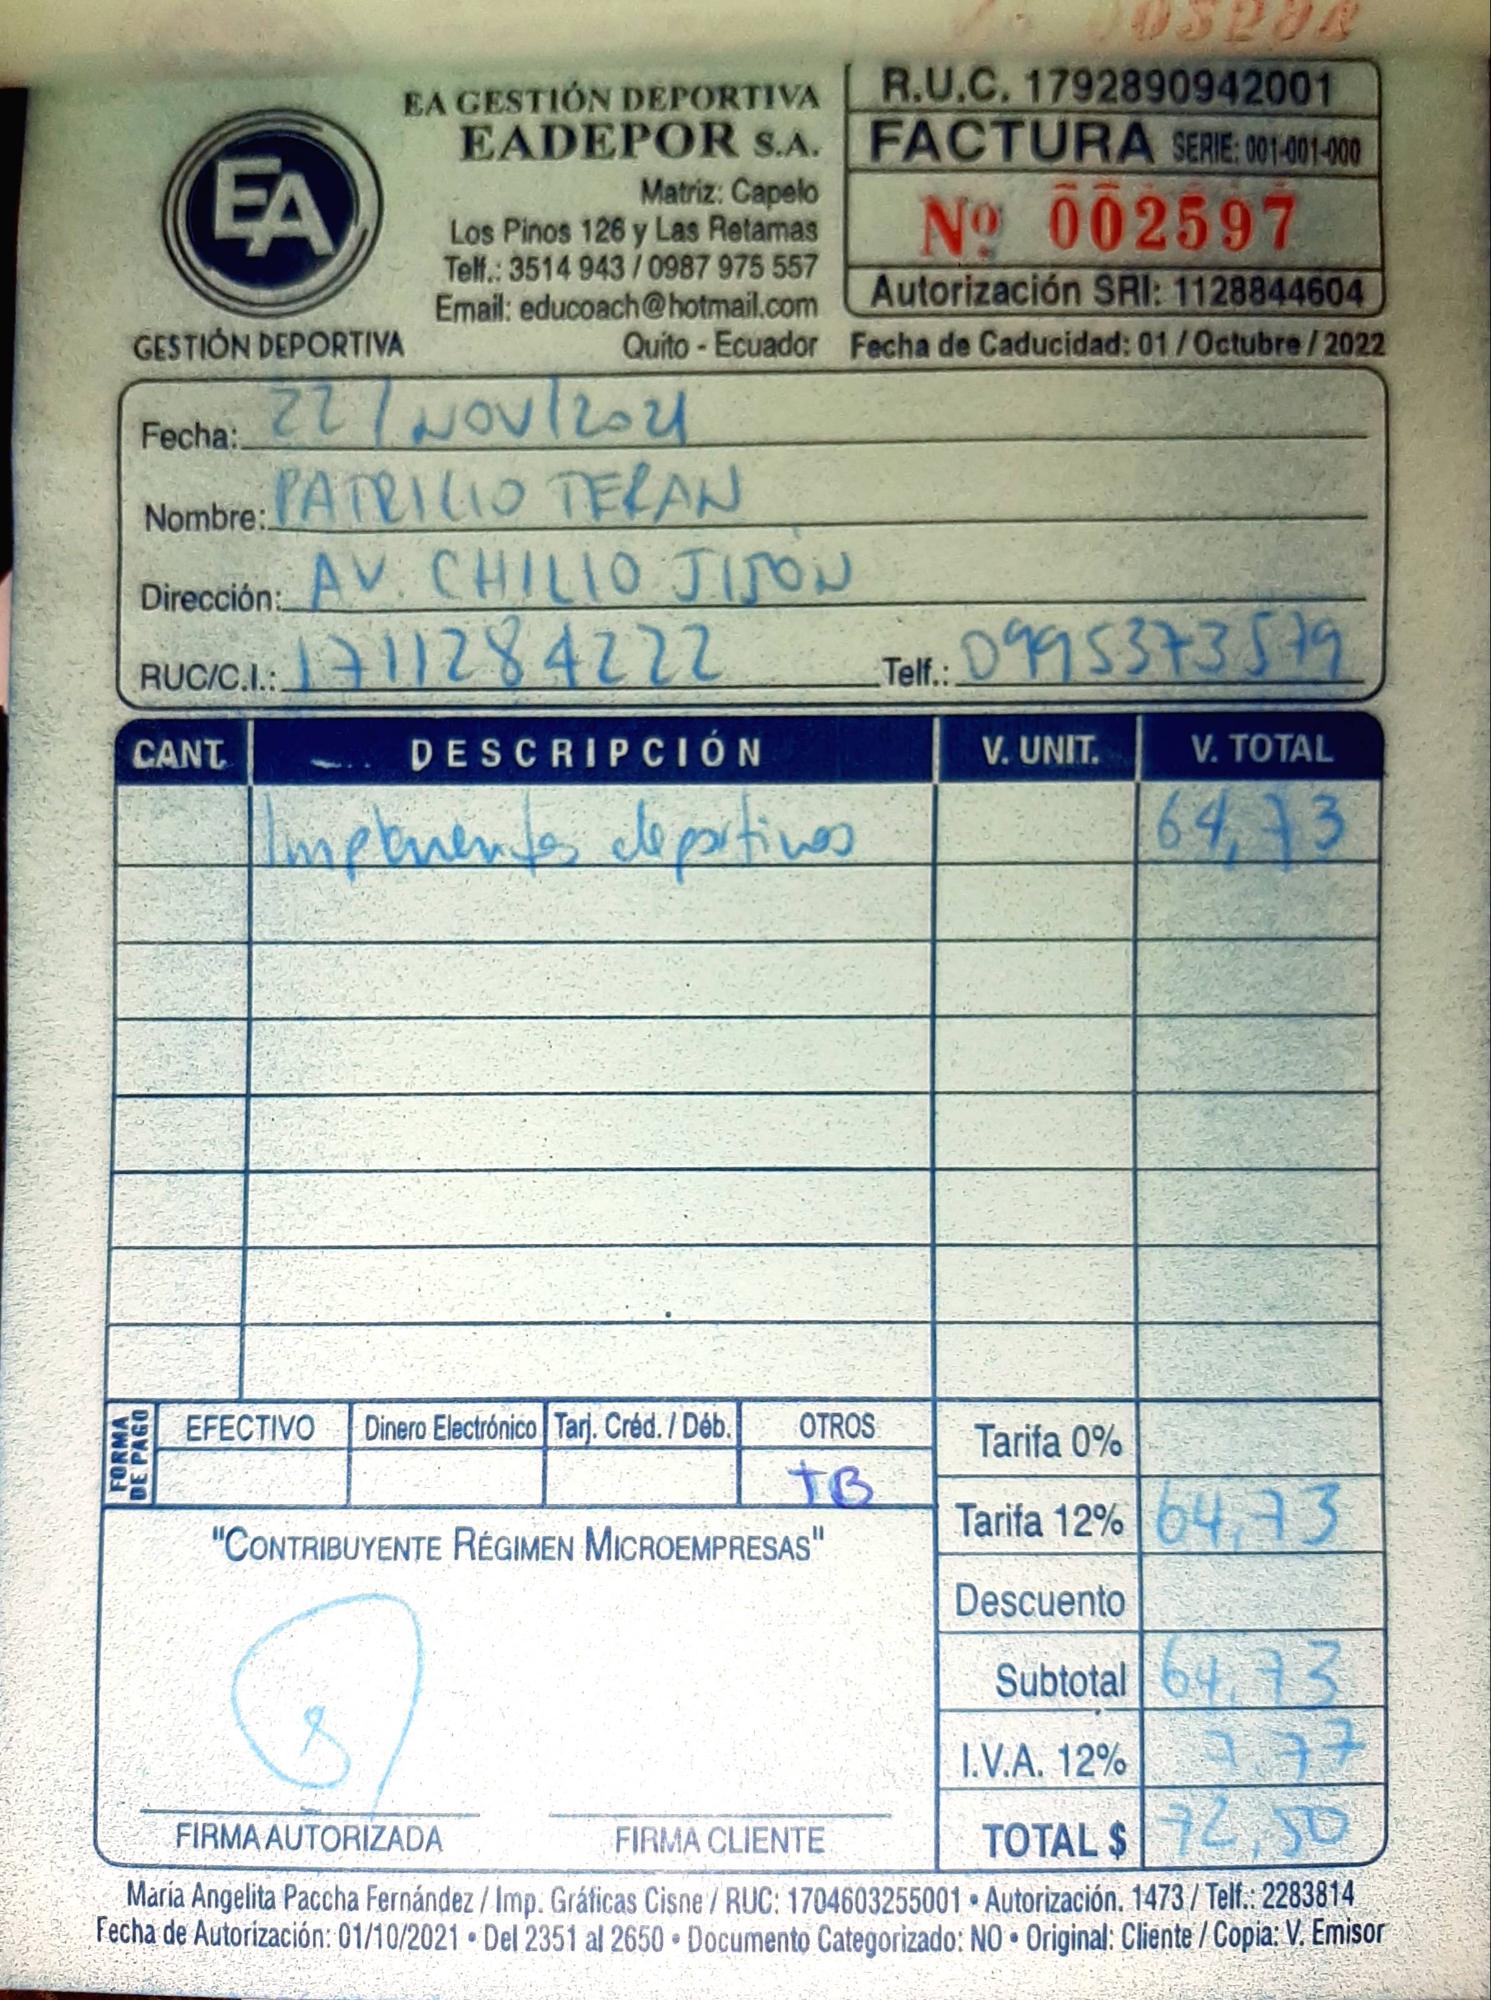 EA GESTIÓN DEPORTIVA
EADEPOR S.A.
Matriz: Capelo
Los Pinos 126 y Las Retamas
Telf.: 3514 943 / 0987 975 557
Email: educoach@hotmail.com
Quito - Ecuador
EA
GESTIÓN DEPORTIVA
R.U.C. 1792890942001
FACTURA SERIE: 001-001-000
Nº 002597
Autorización SRI: 1128844604
Fecha de Caducidad: 01 / Octubre / 2022
Fecha: 22 / NOV / 2021
Nombre: PATRICIO TERAN
Dirección: AV. CHILIO JIJÓN
RUC/C.I.: 1711284222 Telf.: 0995373579
CANT. DESCRIPCIÓN V. UNIT. V. TOTAL
Implementos deportivos 64,73
FORMA DE PAGO
EFECTIVO Dinero Electrónico Tarj. Créd. / Déb. OTROS
TB
Tarifa 0%
Tarifa 12% 64,73
Descuento
Subtotal 64,73
I.V.A. 12% 7,77
TOTAL $ 72,50
"CONTRIBUYENTE RÉGIMEN MICROEMPRESAS"
FIRMA AUTORIZADA FIRMA CLIENTE
María Angelita Paccha Fernández / Imp. Gráficas Cisne / RUC: 1704603255001 • Autorización. 1473 / Telf.: 2283814
Fecha de Autorización: 01/10/2021 • Del 2351 al 2650 • Documento Categorizado: NO • Original: Cliente / Copia: V. Emisor